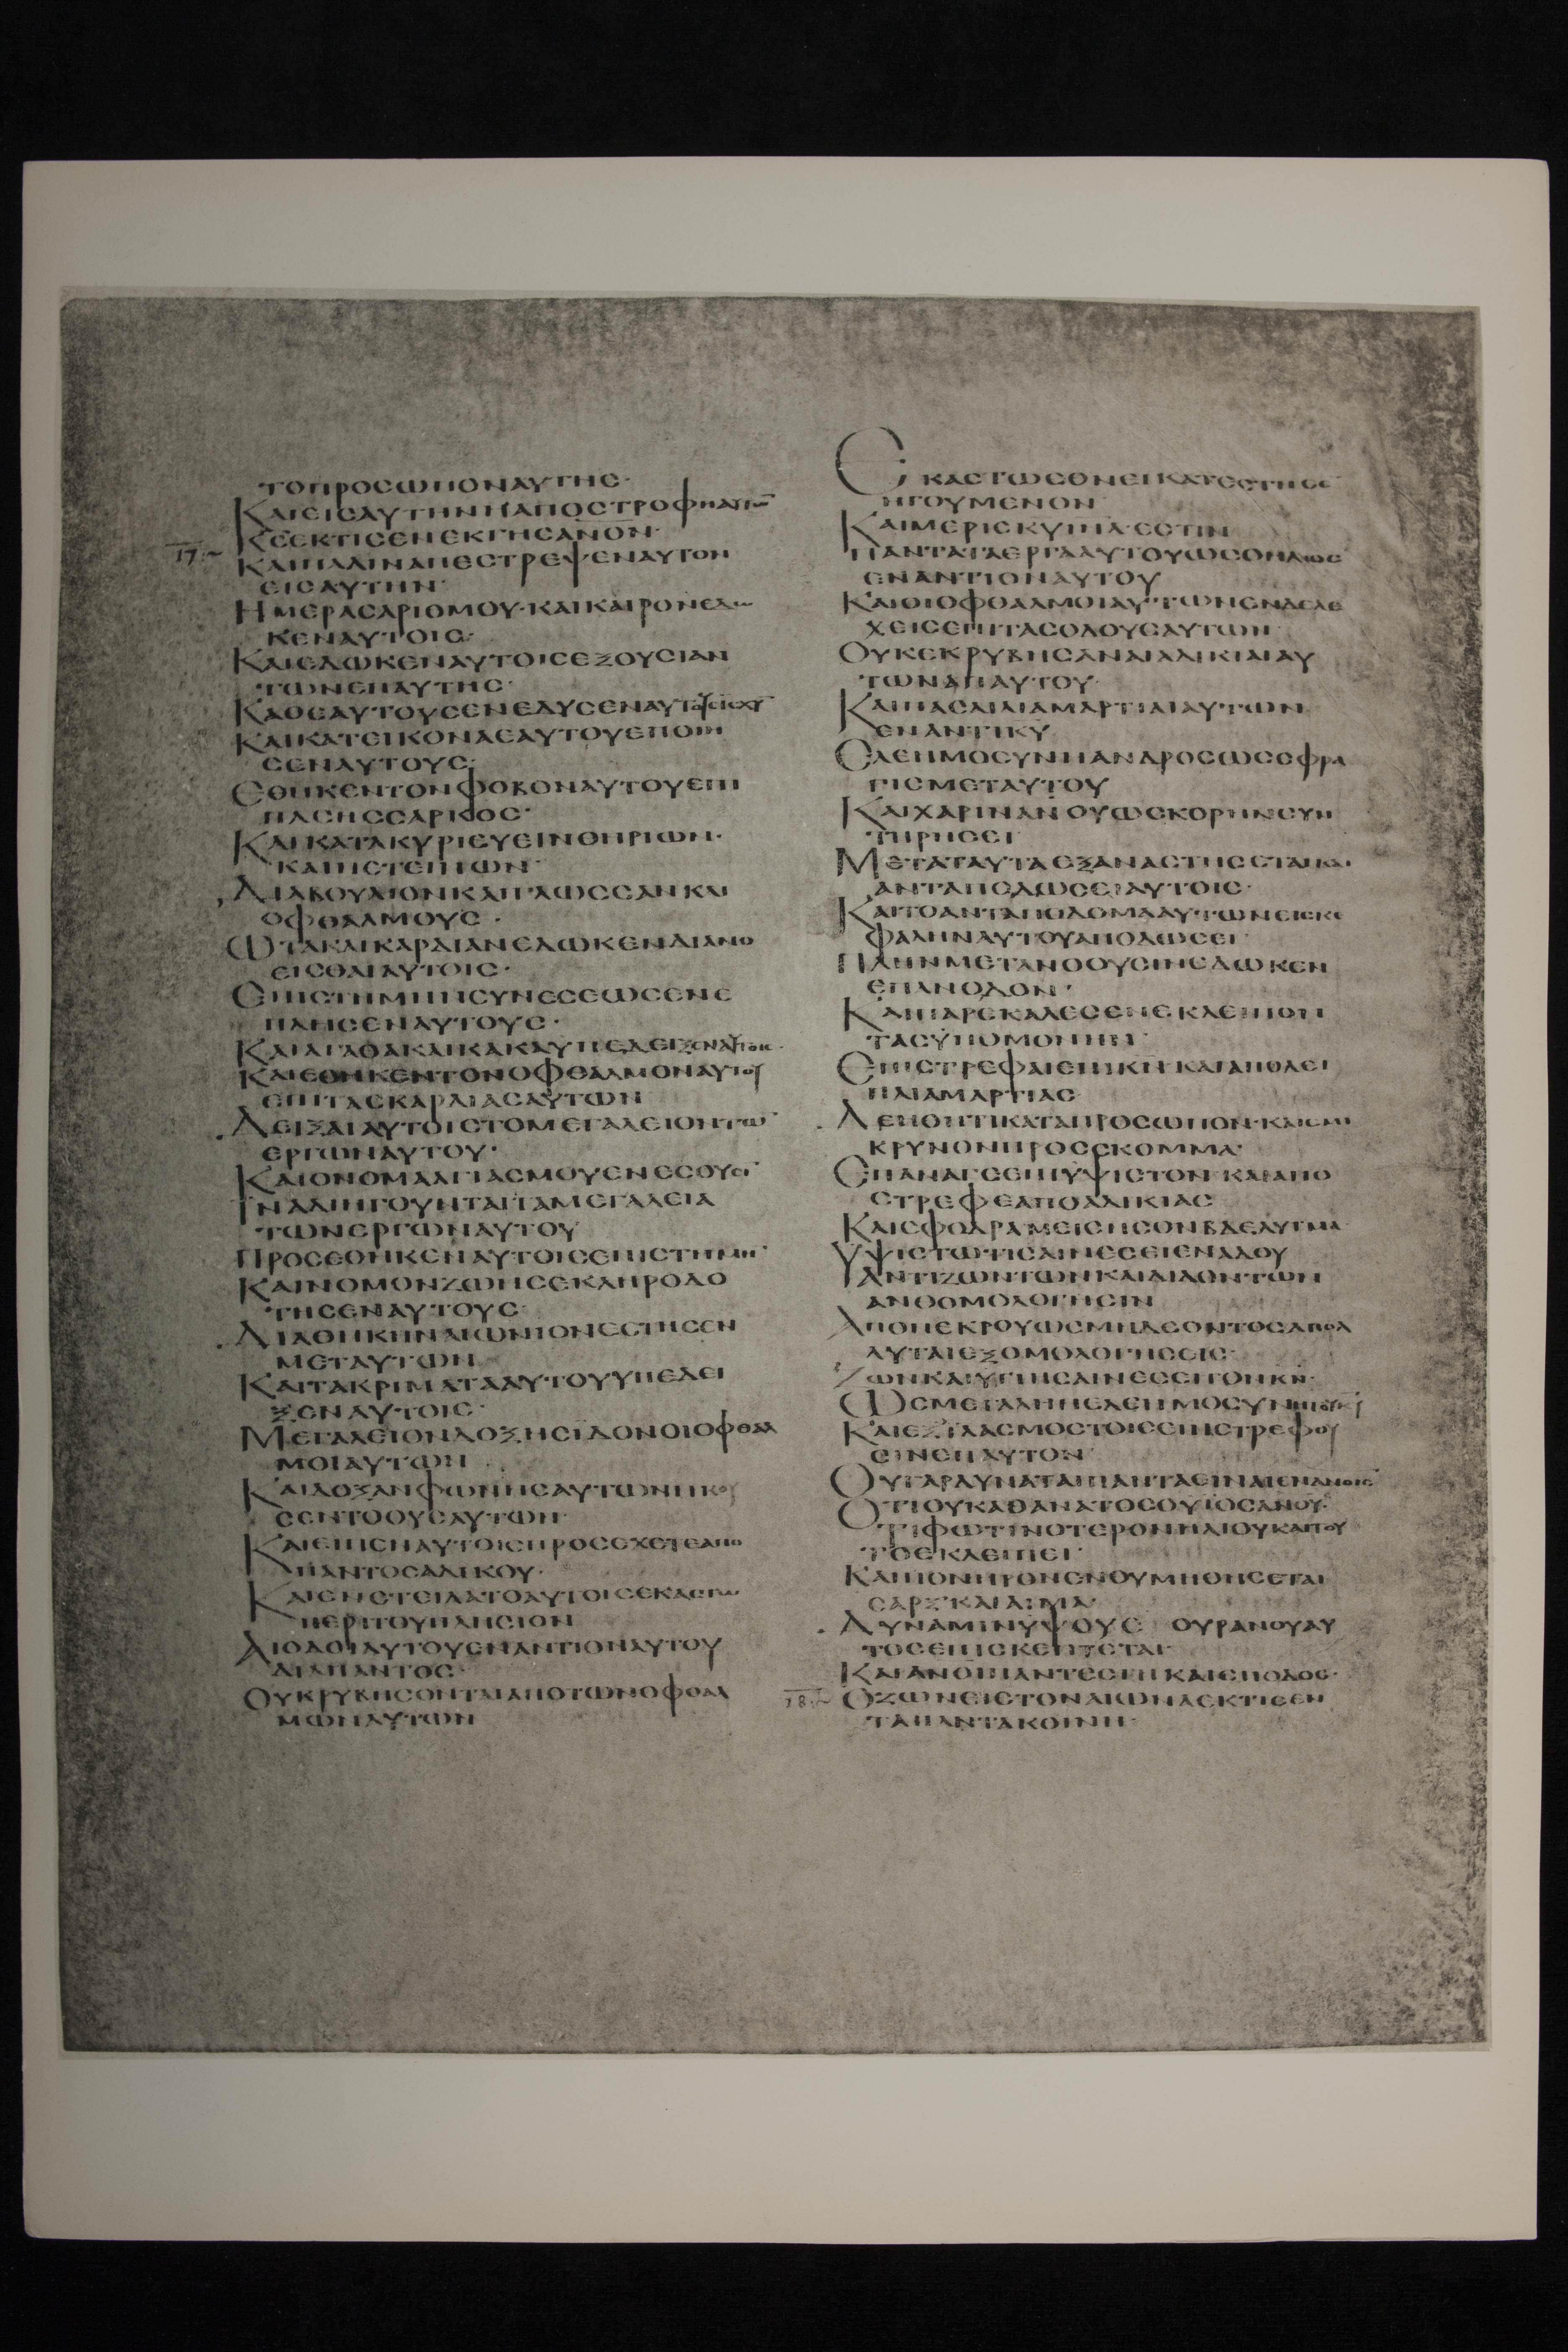 ΤΟΠΡΟСΩΠΟΝΑΥΤΗС·
ΚΑΙΕΙСΑΥΤΗΝΗΑΠΟСΤΡΟΦΗΑΥΤΩ̅
Κ̅С̅ΕΚΤΙСΕΝΕΚΓΗСΑ̅Ν̅Ο̅Ν̅·
17:~
ΚΑΙΠΑΛΙΝΑΠΕСΤΡΕΨΕΝΑΥΤΟΝ
ΕΙСΑΥΤΗΝ·
ΗΜΕΡΑСΑΡΙΘΜΟΥ·ΚΑΙΚΑΙΡΟΝΕΔΩ
ΚΕΝΑΥΤΟΙС·
ΚΑΙΕΔΩΚΕΝΑΥΤΟΙСΕΞΟΥСΙΑΝ
ΤΩΝΕΠΑΥΤΗС·
ΚΑΘΕΑΥΤΟΥСΕΝΕΔΥСΕΝΑΥΤΟΥСΙСΧΥ̅
ΚΑΙΚΑΤΕΙΚΟΝΑΕΑΥΤΟΥΕΠΟΙΗ
СΕΝΑΥΤΟΥС·
ΕΘΗΚΕΝΤΟΝΦΟΒΟΝΑΥΤΟΥΕΠΙ
ΠΑСΗССΑΡΚΟС·
ΚΑΙΚΑΤΑΚΥΡΙΕΥΕΙΝΘΗΡΙΩΝ·
ΚΑΙΠΕΤΕΙΝΩΝ·
ΔΙΑΒΟΥΛΙΟΝΚΑΙΓΛΩССΑΝΚΑΙ
ΟΦΘΑΛΜΟΥС·
ΩΤΑΚΑΙΚΑΡΔΙΑΝΕΔΩΚΕΝΔΙΑΝΟ
ΕΙСΘΑΙΑΥΤΟΙС·
ΕΠΙСΤΗΜΗΝСΥΝΕСΕΩСΕΝΕ
ΠΛΗСΕΝΑΥΤΟΥС·
ΚΑΙΑΓΑΘΑΚΑΙΚΑΚΑΥΠΕΔΕΙΞΕΝΑΥΤΟΙС·
ΚΑΙΕΘΗΚΕΝΤΟΝΟΦΘΑΛΜΟΝΑΥΤΟΥ
ΕΠΙΤΑСΚΑΡΔΙΑСΑΥΤΩΝ
ΔΕΙΞΑΙΑΥΤΟΙСΤΟΜΕΓΑΛΕΙΟΝΤΩ̅
ΕΡΓΩΝΑΥΤΟΥ·
ΚΑΙΟΝΟΜΑΑΓΙΑСΜΟΥΕΝΕСΟΥСΙ̅
ΙΝΑΔΙΗΓΟΥΝΤΑΙΤΑΜΕΓΑΛΕΙΑ
ΤΩΝΕΡΓΩΝΑΥΤΟΥ
ΠΡΟСΕΘΗΚΕΝΑΥΤΟΙСΕΠΙСΤΗΜΗ̅
ΚΑΙΝΟΜΟΝΖΩΗСΕΚΛΗΡΟΔΟ
ΤΗСΕΝΑΥΤΟΥС·
ΔΙΑΘΗΚΗΝΑΙΩΝΙΟΝΕСΤΗСΕΝ
ΜΕΤΑΥΤΩΝ
ΚΑΙΤΑΚΡΙΜΑΤΑΑΥΤΟΥΥΠΕΔΕΙ
ΞΕΝΑΥΤΟΙС·
ΜΕΓΑΛΕΙΟΝΔΟΞΗСΪΔΟΝΟΙΟΦΘΑΛ
ΜΟΙΑΥΤΩΝ
ΚΑΙΔΟΞΑΝΦΩΝΗСΑΥΤΩΝΗΚΟΥ
СΕΝΤΟΟΥСΑΥΤΩΝ·
ΚΑΙΕΙΠΕΝΑΥΤΟΙСΠΡΟСΕΧΕΤΕΑΠΟ
ΠΑΝΤΟСΑΔΙΚΟΥ·
ΚΑΙΕΝΕΤΕΙΛΑΤΟΑΥΤΟΙСΕΚΑСΤΩ
ΠΕΡΙΤΟΥΠΛΗСΙΟΝ
ΑΙΟΔΟΙΑΥΤΟΥΕΝΑΝΤΙΟΝΑΥΤΟΥ
ΔΙΑΠΑΝΤΟС·
ΟΥΚΡΥΒΗСΟΝΤΑΙΑΠΟΤΩΝΟΦΘΑΛ
ΜΩΝΑΥΤΩΝ
ΕΚΑСΤΩΕΘΝΕΙΚΑΤΕСΤΗСΕ
ΗΓΟΥΜΕΝΟΝ·
ΚΑΙΜΕΡΙСΚΥΙΗΛΕСΤΙΝ
ΠΑΝΤΑΤΑΕΡΓΑΑΥΤΟΥΩСΟΗΛΙΟС
ΕΝΑΝΤΙΟΝΑΥΤΟΥ
ΚΑΙΟΙΟΦΘΑΛΜΟΙΑΥΤΩΝΕΝΔΕΛΕ
ΧΕΙСΕΠΙΤΑСΟΔΟΥСΑΥΤΩΝ
ΟΥΚΕΚΡΥΒΗСΑΝΑΙΑΔΙΚΙΑΙΑΥ
ΤΩΝΑΠΑΥΤΟΥ·
ΚΑΙΠΑСΑΙΑΙΑΜΑΡΤΙΑΙΑΥΤΩΝ
ΕΝΑΝΤΙΚ̅Υ̅
ΕΛΕΗΜΟСΥΝΗΑΝΔΡΟСΩССΦΡΑ
ΓΙСΜΕΤΑΥΤΟΥ
ΚΑΙΧΑΡΙΝΑ̅Ν̅Ο̅Υ̅ΩСΚΟΡΗΝСΥΝ
ΤΗΡΗСΕΙ
ΜΕΤΑΤΑΥΤΑΕΞΑΝΑСΤΗСΕΤΑΙΚΑΙ
ΑΝΤΑΠΟΔΩСΕΙΑΥΤΟΙС·
ΚΑΙΤΟΑΝΤΑΠΟΔΟΜΑΑΥΤΩΝΕΙСΚΕ
ΦΑΛΗΝΑΥΤΟΥΑΠΟΔΩСΕΙ·
ΠΛΗΝΜΕΤΑΝΟΟΥСΙΝΕΔΩΚΕΝ
ΕΠΑΝΟΔΟΝ·
ΚΑΙΠΑΡΕΚΑΛΕСΕΝΕΚΛΕΙΠΟΝ
ΤΑСΫΠΟΜΟΝΗΝ
ΕΠΙСΤΡΕΦΑΙΕΠΙΚ̅Ν̅ΚΑΙΑΠΟΛΕΙ
ΠΑΙΑΜΑΡΤΙΑС
ΔΕΗΘΗΤΙΚΑΤΑΠΡΟСΩΠΟΝ·ΚΑΙСΜΙ
ΚΡΥΝΟΝΠΡΟССΚΟΜΜΑ·
ΕΠΑΝΑΓΕΕΠΙΫΨΙСΤΟΝ·ΚΑΙΑΠΟ
СΤΡΕΦΕΑΠΟΑΔΙΚΙΑС
ΚΑΙСΦΟΔΡΑΜΕΙСΗСΟΝΒΔΕΛΥΓΜΑ
ΥΨΙСΤΩΤΙСΑΙΝΕСΕΙΕΝΑΔΟΥ
ΑΝΤΙΖΩΝΤΩΝΚΑΙΔΙΔΟΝΤΩΝ
ΑΝΘΟΜΟΛΟΓΗСΙΝ
ΑΠΟΝΕΚΡΟΥΩСΜΗΔΕΟΝΤΟСΑΠΟΛ
ΛΥΤΑΙΕΞΟΜΟΛΟΓΗСΕΙС·
ΖΩΝΚΑΙΥΓΙΗСΑΙΝΕСΕΙΤΟΝΚ̅Ν̅·
ΩСΜΕΓΑΛΗΗΕΛΕΗΜΟСΥΝΗΤΟΥΚ̅Υ̅
ΚΑΙΕΞΙΛΑСΜΟСΤΟΙСΕΠΙСΤΡΕΦΟΥ
СΙΝΕΠΑΥΤΟΝ
ΟΥΓΑΡΔΥΝΑΤΑΙΠΑΝΤΑΕΙΝΑΙΕΝΑ̅Ν̅Ο̅Ι̅С̅
ΟΤΙΟΥΚΑΘΑΝΑΤΟСΟΥΪΟСΑ̅Ν̅Ο̅Υ̅·
ΤΙΦΩΤΙΝΟΤΕΡΟΝΗΛΙΟΥΚΑΙΤΟΥ
ΤΟΕΚΛΕΙΠΕΙ·
ΚΑΙΠΟΝΗΡΟΝΕΝΟΥΜΗΘΗСΕΤΑΙ
СΑΡΞΚΑΙΑΙΜΑ·
ΔΥΝΑΜΙΝΥΨΟΥС ΟΥΡΑΝΟΥΑΥ
ΤΟСΕΠΙСΚΕΠΤΕΤΑΙ·
ΚΑΙΑΝΟΙΠΑΝΤΕСΓΗΚΑΙСΠΟΔΟС·
18:~
ΟΖΩΝΕΙСΤΟΝΑΙΩΝΑΕΚΤΙСΕΝ
ΤΑΠΑΝΤΑΚΟΙΝΗ·